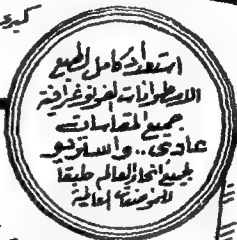 استعداد كامل لطبع
الاسطوانات الفونوغرافية
جميع المقاسات
عادى .. والستريو
لجميع انحاء العالم طبقا
العالمية